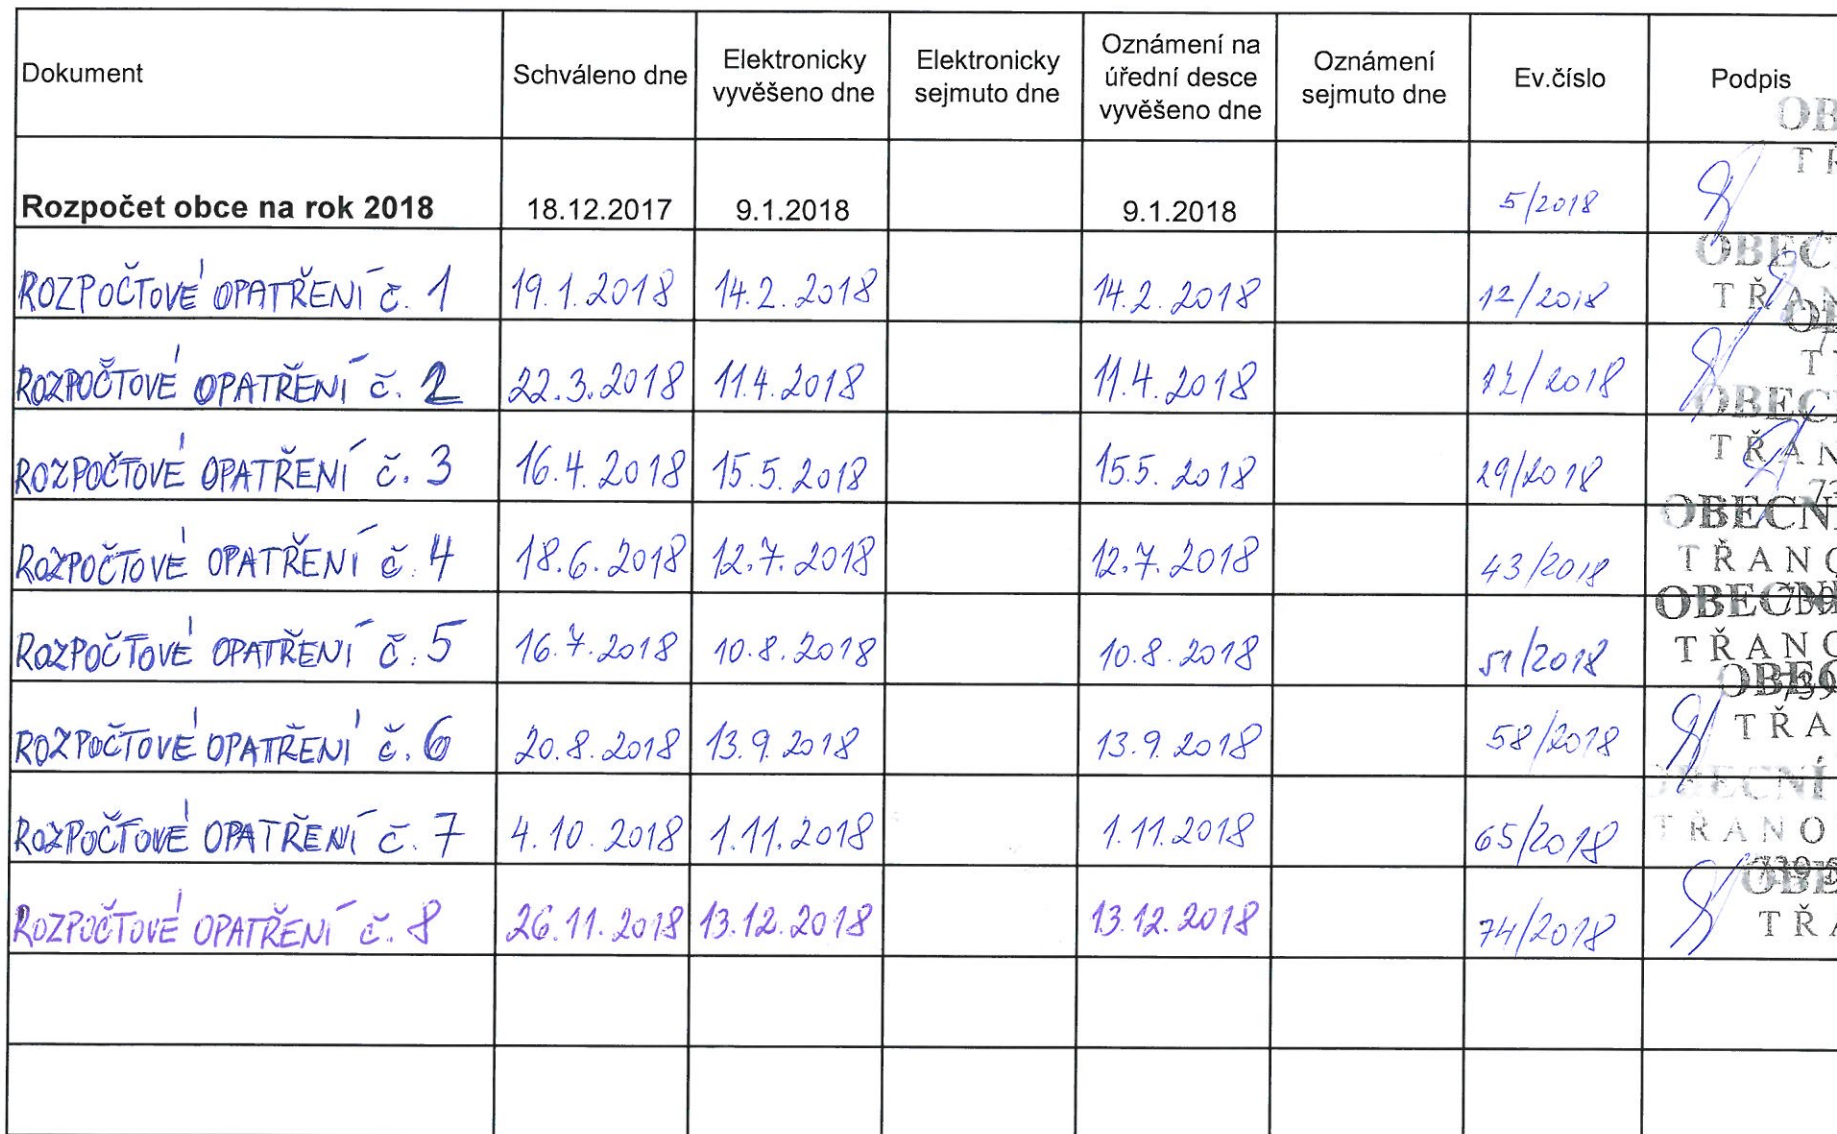 Dokument Schváleno dne Elektronicky vyvěšeno dne Elektronicky sejmuto dne Oznámení na úřední desce vyvěšeno dne Oznámení sejmuto dne Ev.číslo Podpis
OB
TŘ
Rozpočet obce na rok 2018 18.12.2017 9.1.2018 9.1.2018 5/2018
OBEC
ROZPOČTOVÉ OPATŘENÍ č. 1 19.1.2018 14.2.2018 14.2.2018 12/2018 TŘAN
ROZPOČTOVÉ OPATŘENÍ č. 2 22.3.2018 11.4.2018 11.4.2018 /2018
OBEC
ROZPOČTOVÉ OPATŘENÍ č. 3 16.4.2018 15.5.2018 15.5.2018 29/2018 TŘAN
OBECN
ROZPOČTOVÉ OPATŘENÍ č. 4 18.6.2018 12.7.2018 12.7.2018 43/2018 TŘANO
OBECNÍ
ROZPOČTOVÉ OPATŘENÍ č. 5 16.7.2018 10.8.2018 10.8.2018 51/2018 TŘANO
OBEC
ROZPOČTOVÉ OPATŘENÍ č. 6 20.8.2018 13.9.2018 13.9.2018 58/2018 TŘA
OBECNÍ
ROZPOČTOVÉ OPATŘENÍ č. 7 4.10.2018 1.11.2018 1.11.2018 65/2018 TŘANO
OBE
ROZPOČTOVÉ OPATŘENÍ č. 8 26.11.2018 13.12.2018 13.12.2018 74/2018 TŘA